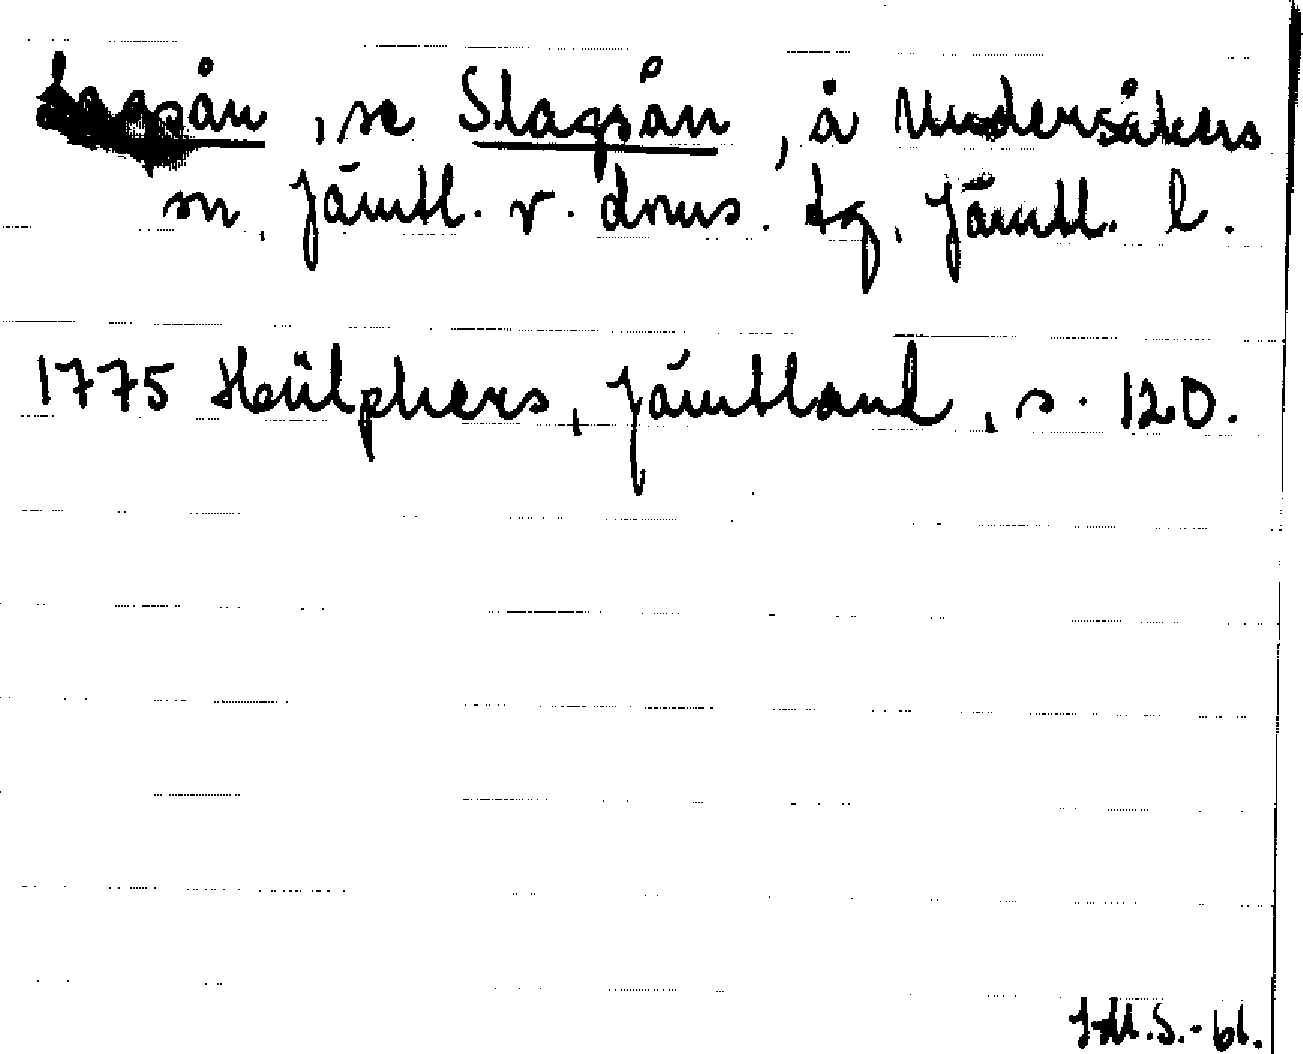 Lagsån, se Slagsån, å Undersåkers
sn, Jämtl. v. doms. tg, Jämtl. l.
1775 Hülphers, Jämtland, s. 120.
J.M.S.-61.